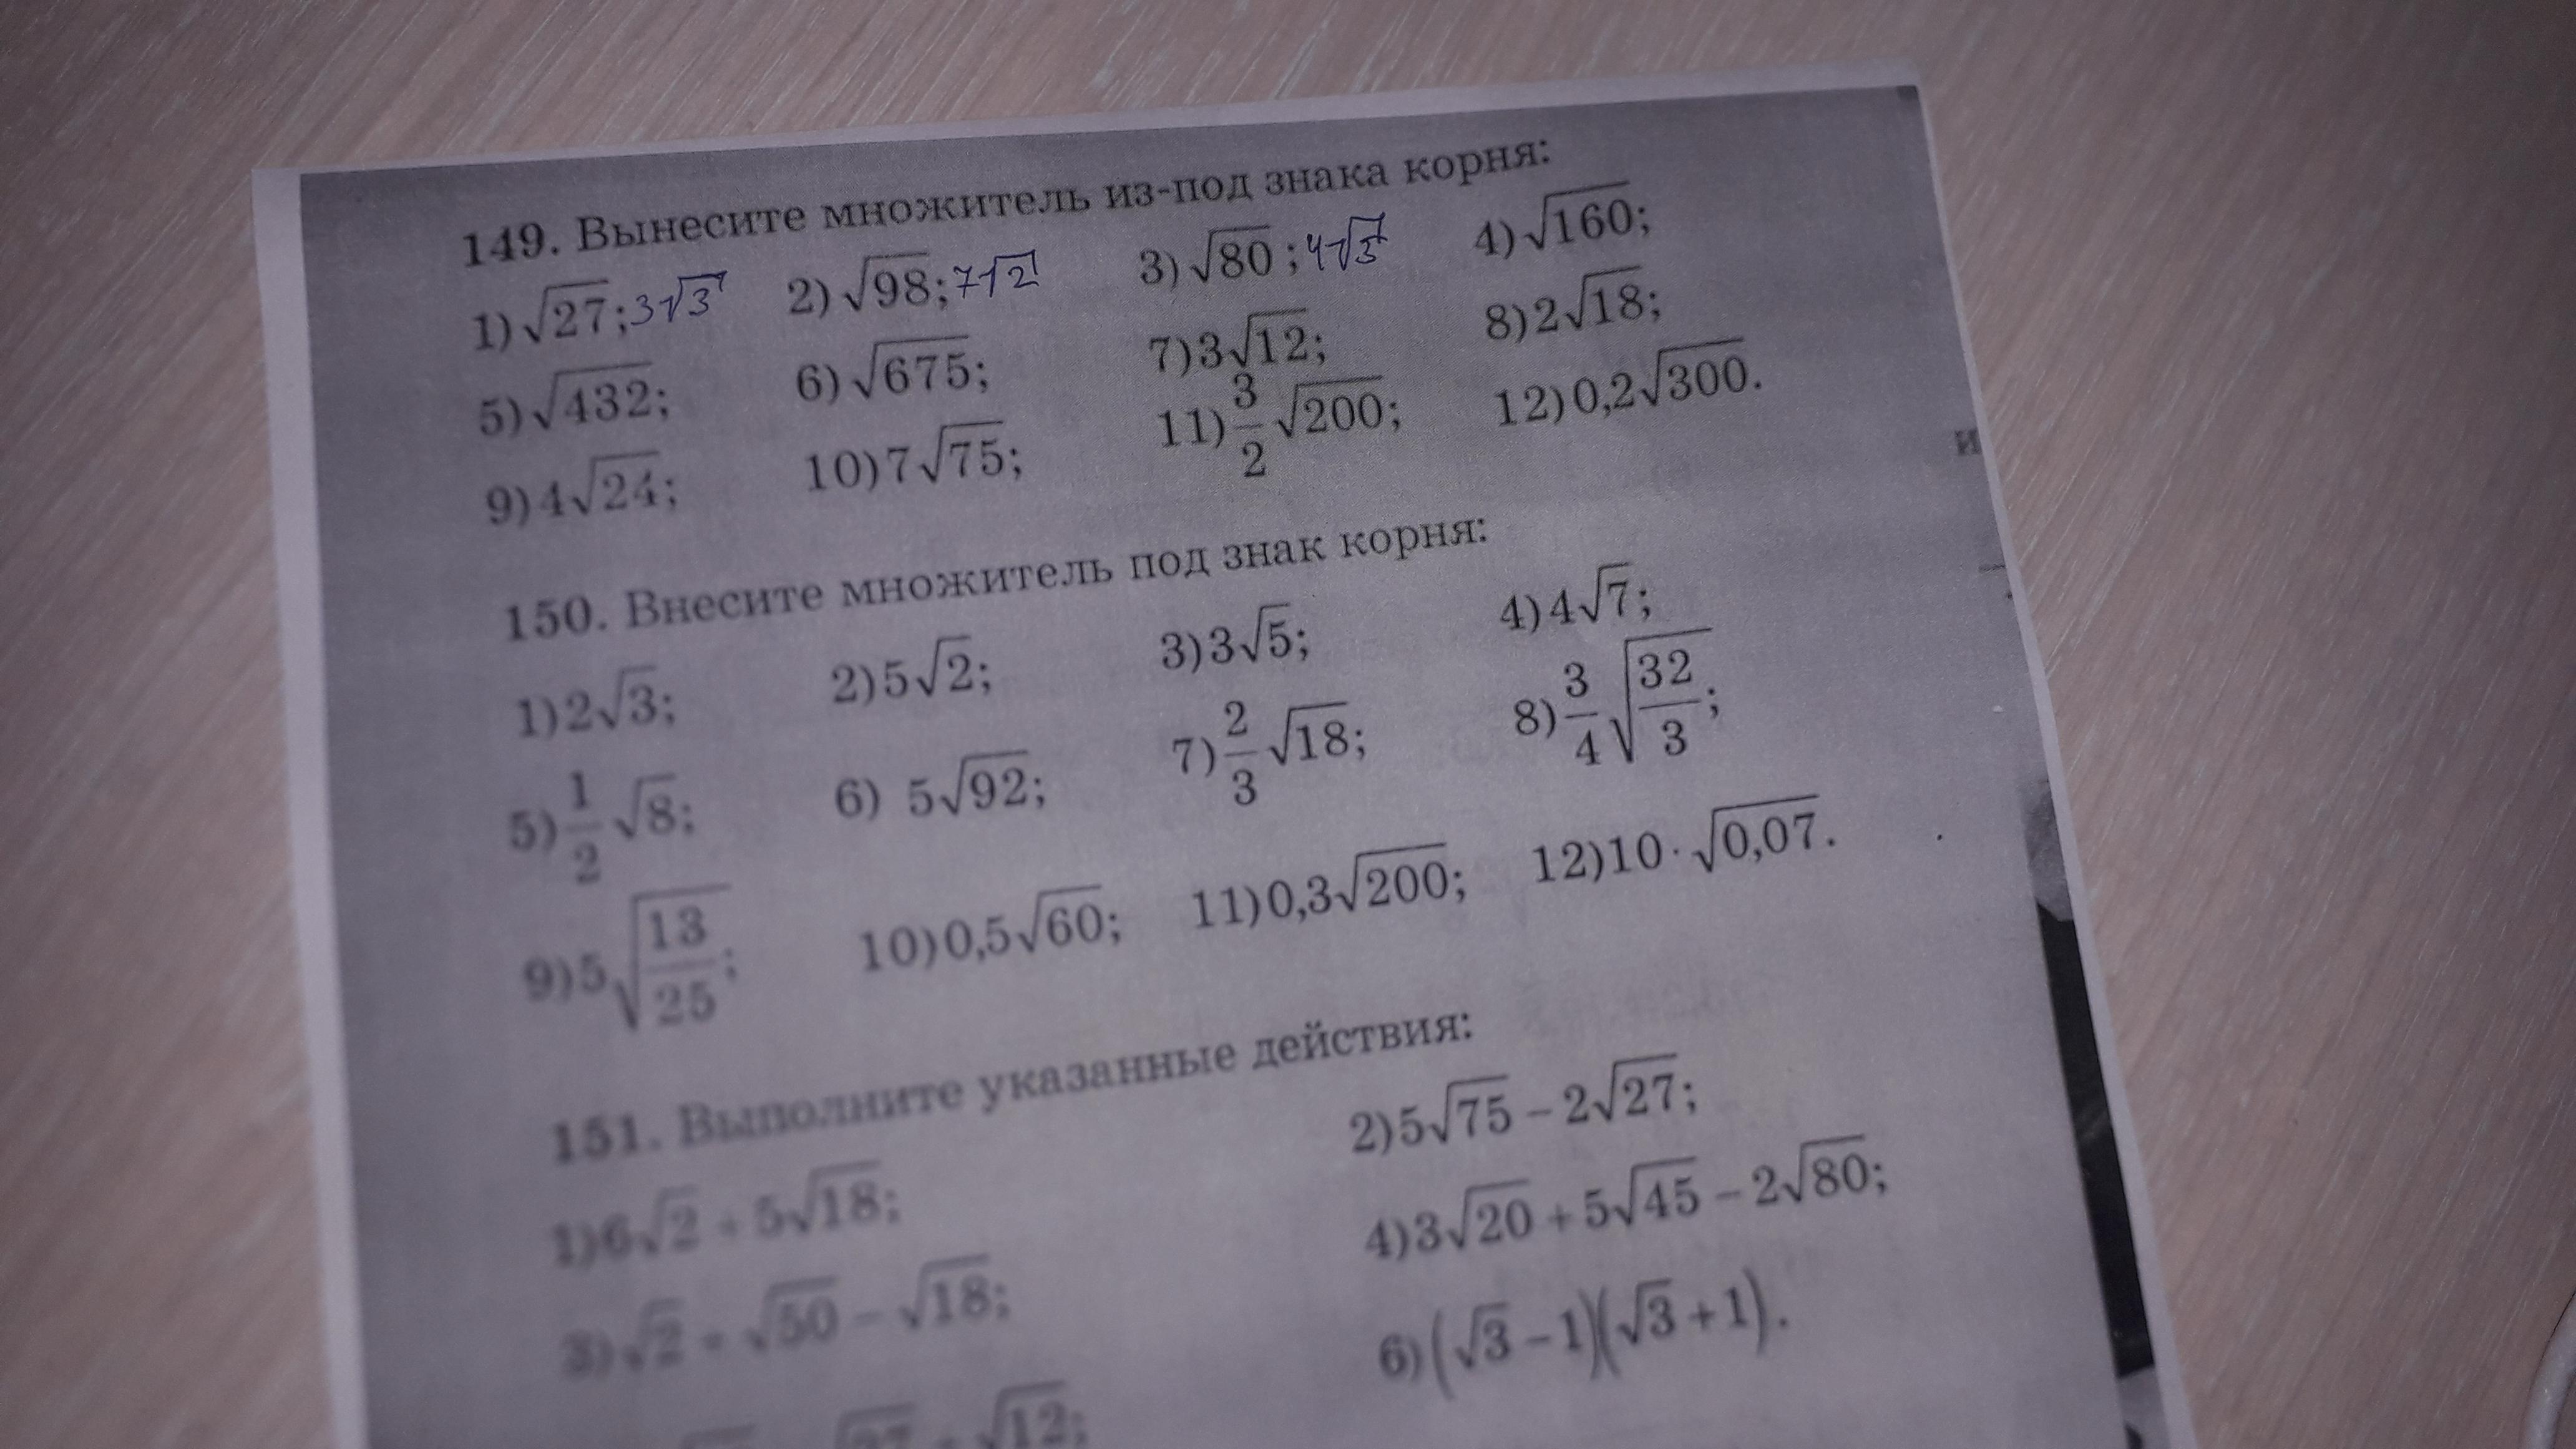 149. Вынесите множитель из-под знака корня:
1) √27; 3√3 2) √98; 7√2 3) √80; 4√3 4) √160;
5) √432; 6) √675; 7) 3√12; 8) 2√18;
9) 4√24; 10) 7√75; 11) 3/2 √200; 12) 0,2√300.
и
150. Внесите множитель под знак корня:
1) 2√3; 2) 5√2; 3) 3√5; 4) 4√7;
5) 1/2 √8; 6) 5√92; 7) 2/3 √18; 8) 3/4 √(32/3);
9) 5√(13/25); 10) 0,5√60; 11) 0,3√200; 12) 10·√0,07.
151. Выполните указанные действия:
1) 6√2 + 5√18; 2) 5√75 − 2√27;
3) √2 + √50 − √18; 4) 3√20 + 5√45 − 2√80;
√12; 6) (√3 − 1)(√3 + 1).